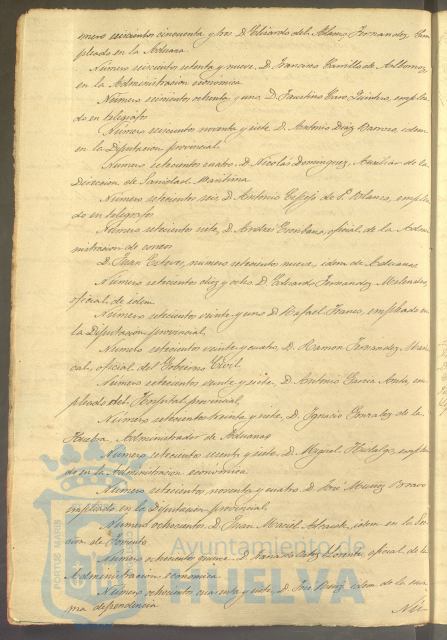 mero seiscientos cincuenta y tres D. Eduardo del Alamo, Fernandez Em-
pleado en la Aduana
Número seiscientos setenta y nueve, D. Francisco Carrillo de Albornoz
en la Administracion económica
Número seiscientos ochenta y uno, D. Faustino Caro Quintero, emplea-
do en telégrafos
Número seiscientos noventa y siete, D. Antonio Diaz Barroso, idem
en la Diputacion provincial
Número setecientos cuatro, D. Nicolás Dominguez, Auxiliar de la
Direccion de Sanidad Maritima
Número setecientos seis, D. Antonio Espejo de P. Blanco, emplea-
do en telégrafos
Número setecientos siete, D. Andres oficial de la Admi-
nistracion de correos
D. Juan Esteves, numero setecientos nueve, idem de Aduanas
Número setecientos diez y ocho, D. Eduardo Fernandez Melendez,
oficial de idem
Número setecientos veinte y uno D. Rafael Franco, empleado en
la Diputacion provincial
Número setecientos veinte y cuatro, D. Ramon Fernandez Maris-
cal, oficial del Gobierno Civil
Número setecientos veinte y siete, D. Antonio Garcia em-
pleado del Hospital provincial
Número setecientos treinta y siete, D. Ignacio Gonzalez de la
Huebra, Administrador de Aduanas
Número setecientos y siete, D. Miguel Hidalgo, emplea-
do en la Administracion económica
Número setecientos noventa y cuatro, D. José Muñoz Bravo
empleado en la Diputacion provincial
Número ochocientos, D. Juan idem en la
de Fomento
Número ochocientos quince, D. Llorente, oficial de la
Administracion económica
Número ochocientos cuarenta y siete, D. José idem de la mis-
ma dependencia
Nú-
PORTUS MARIS
Ayuntamiento de
HUELVA